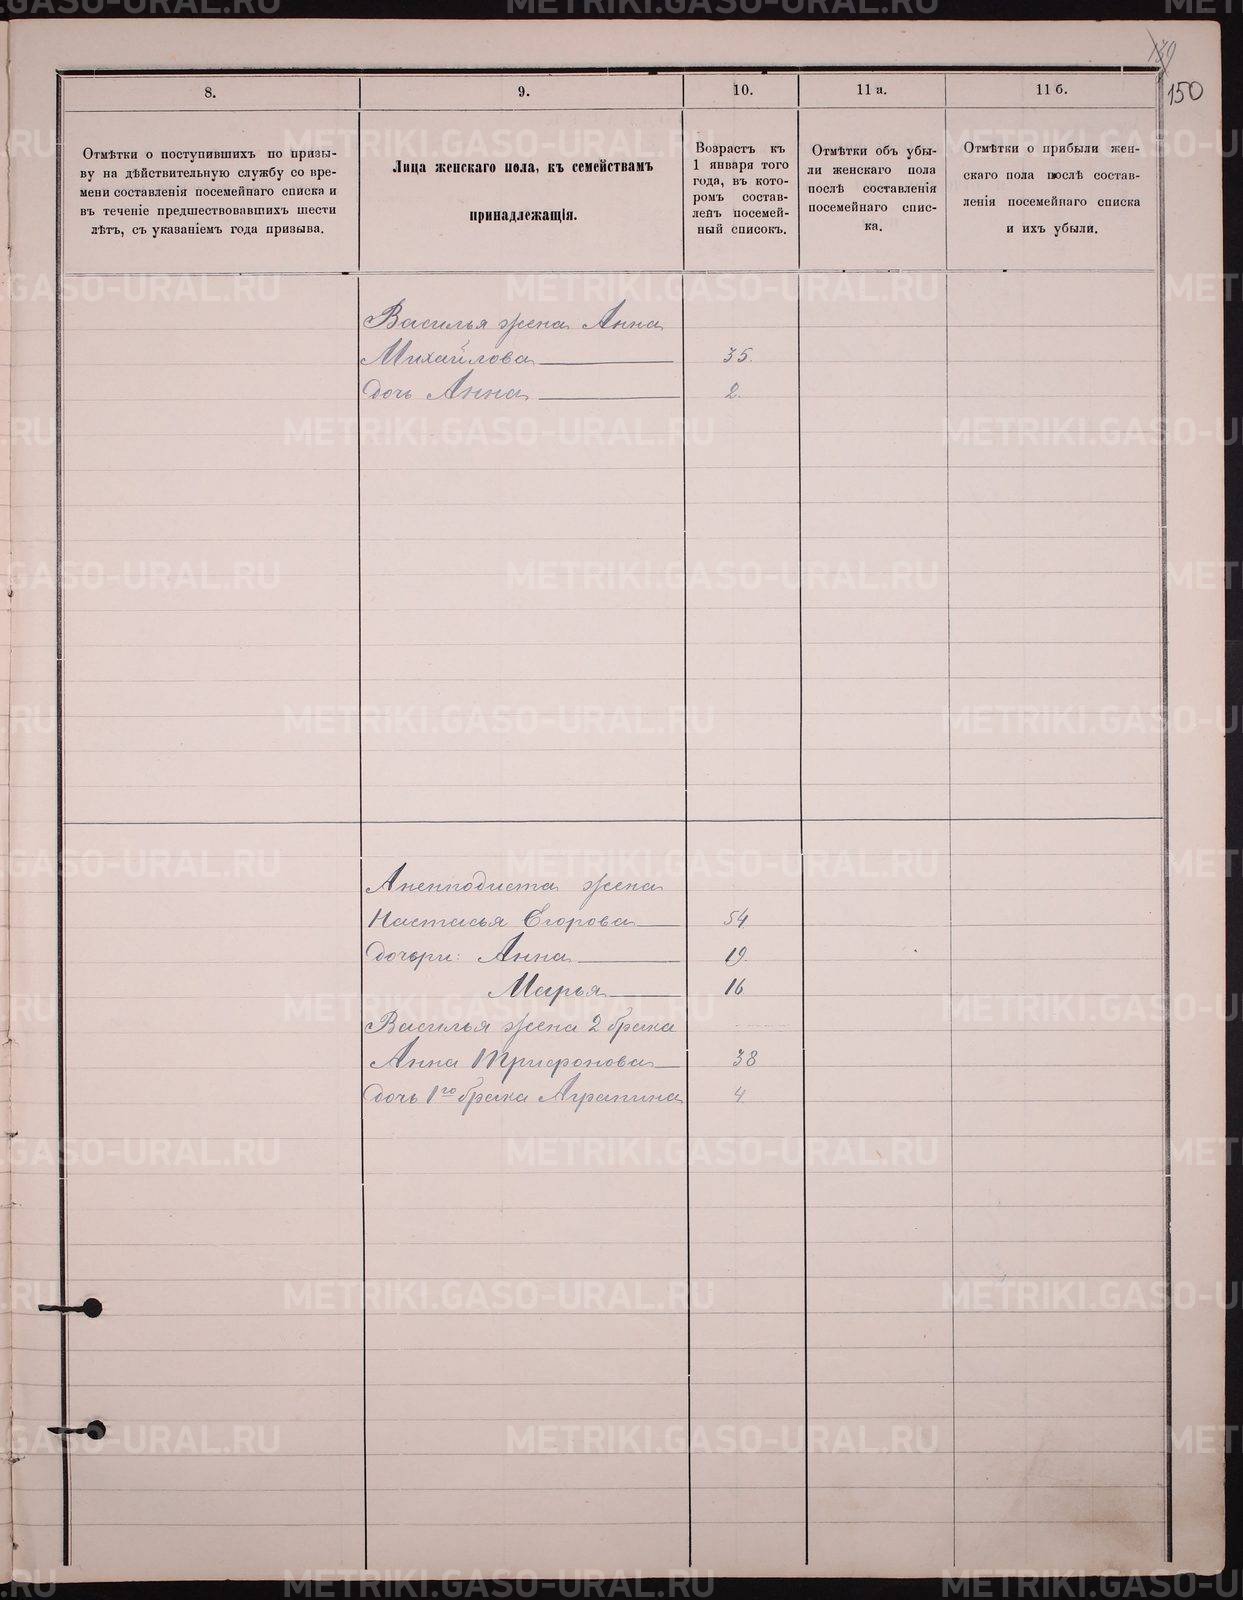 139
150
8.
9.
10.
11 а.
11 б.
Отмѣтки о поступившихъ по призы-
ву на дѣйствительную службу со вре-
мени составленія посемейнаго списка и
въ теченіе предшествовавшихъ шести
лѣтъ, съ указаніемъ года призыва.
Лица женскаго пола, къ семействамъ
принадлежащія.
Возрастъ къ
1 января того
года, въ кото-
ромъ состав-
ленъ посемей-
ный списокъ.
Отмѣтки объ убы-
ли женскаго пола
послѣ составленія
посемейнаго спис-
ка.
Отмѣтки о прибыли жен-
скаго пола послѣ состав-
ленія посемейнаго списка
и ихъ убыли.
Василья жена Анна
Михайлова 35.
дочь Анна 2.
Анемподиста жена
Настасья Егорова 54
дочери: Анна 19.
Марья 16
Василья жена 2 брака
Анна Трифонова 38
дочь 1го брака Аграпина 4.
METRIKI.GASO-URAL.RU